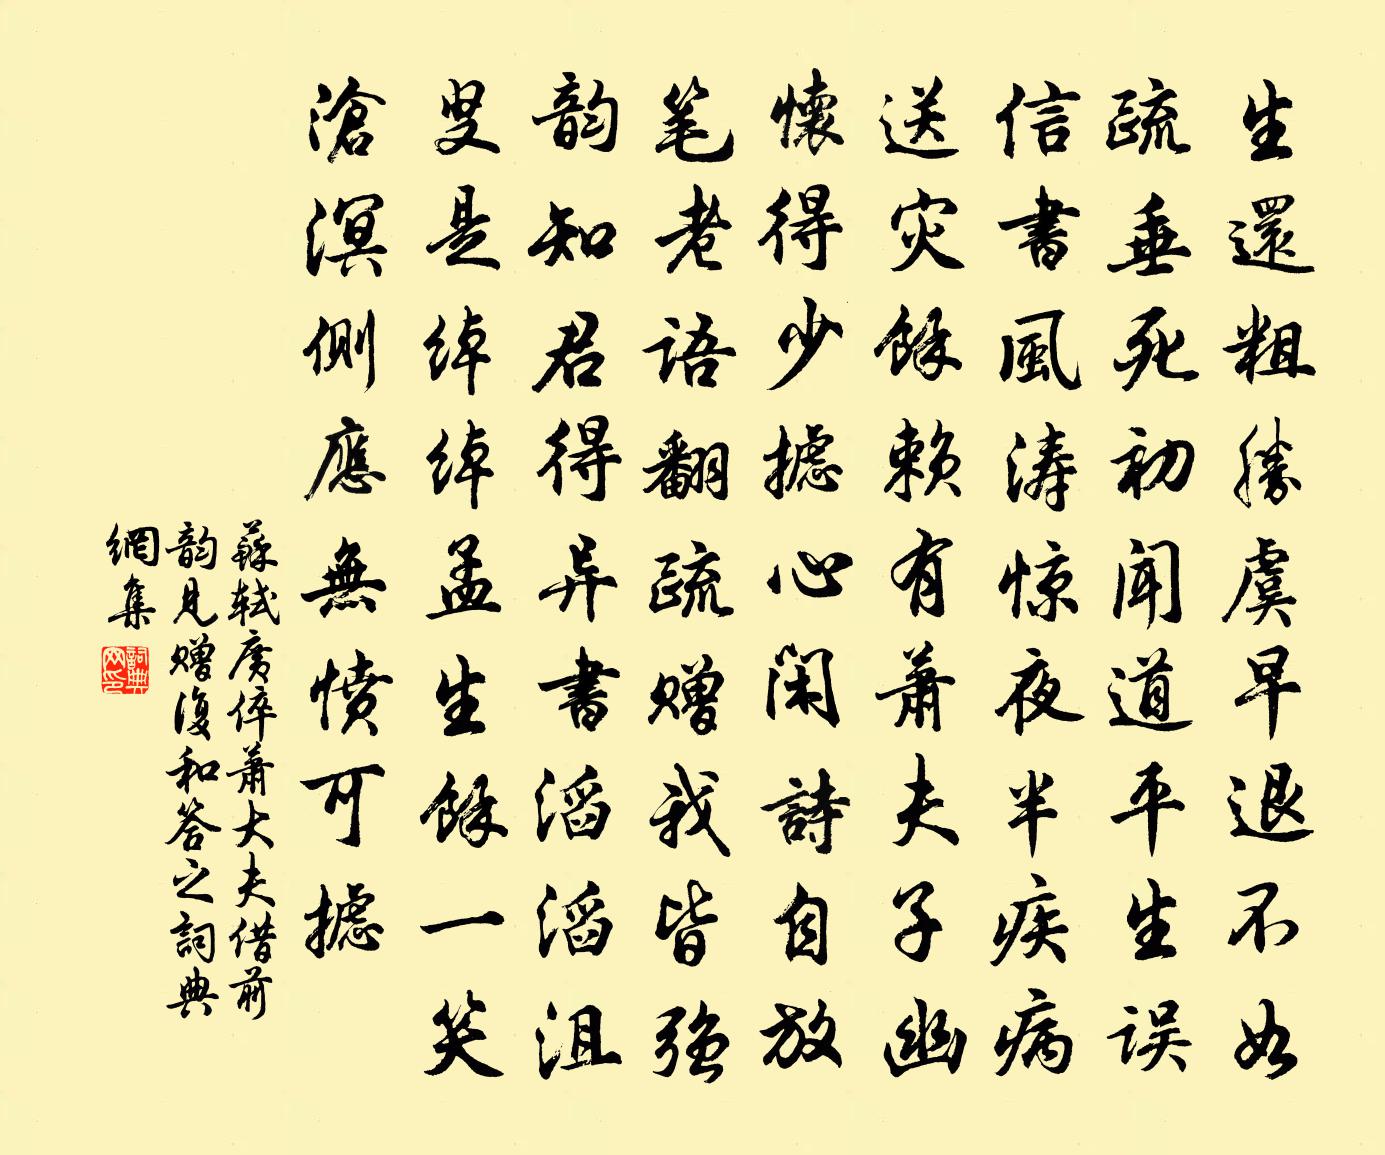 生還粗勝虞早退不如
疏垂死初聞道平生误
信書風濤惊夜半疾病
送灾餘赖有蕭夫子幽
懷得少攄心閑詩自放
笔老語翻疏赠我皆强
韵知君得异書滔滔沮
叟是绰绰孟生餘一笑
滄溟側應無憤可攄
蘇軾虔倅蕭大夫借前
韵見赠復和答之詞典
網集
詞典网印